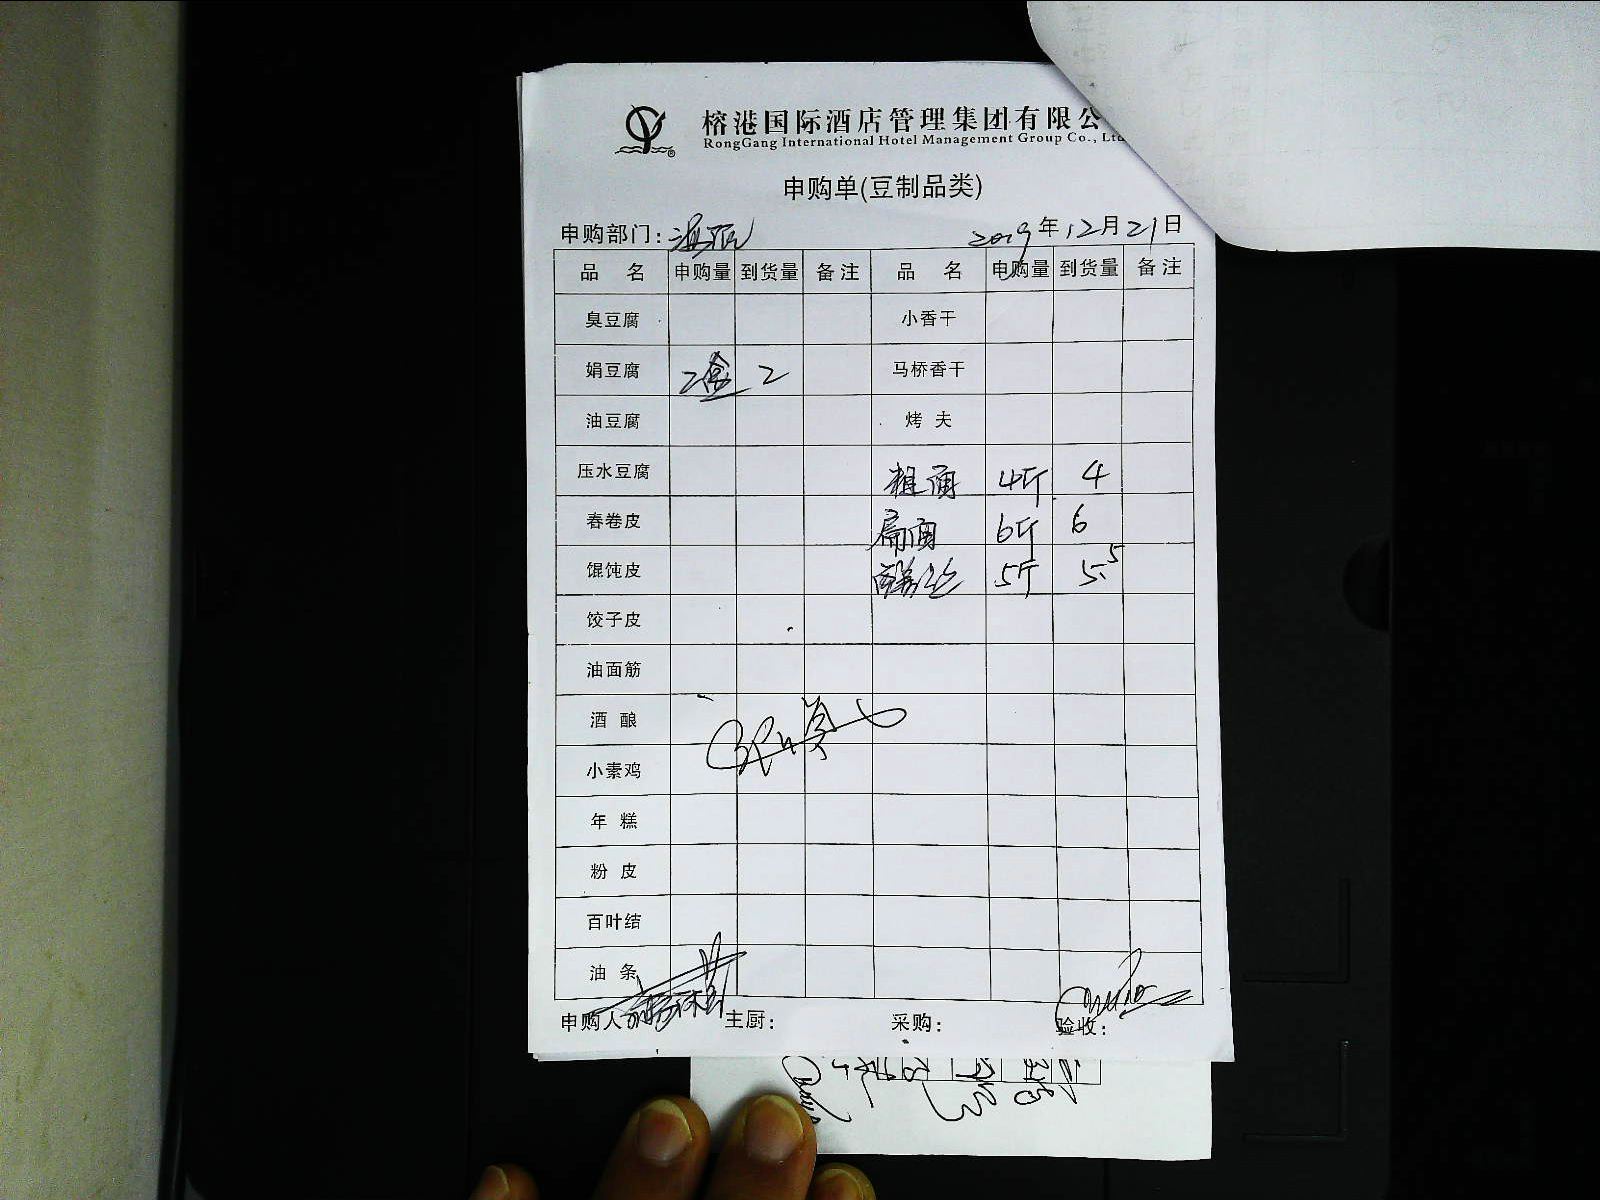 榕港国际酒店管理集团有限公
RongGang International Hotel Management Group Co., Ltd
申购单(豆制品类)
申购部门: 2019年12月21日
品 名 申购量 到货量 备注 品 名 申购量 到货量 备注
臭豆腐 小香干
娟豆腐 2盒 2 马桥香干
油豆腐 烤 夫
压水豆腐 粗面 4斤 4
春卷皮 扁面 6斤 6
馄饨皮 5斤 5.5
饺子皮
油面筋
酒 酿
小素鸡
年 糕
粉 皮
百叶结
油 条
申购人 主厨: 采购: 验收: